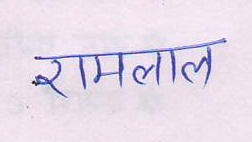 रामलाल